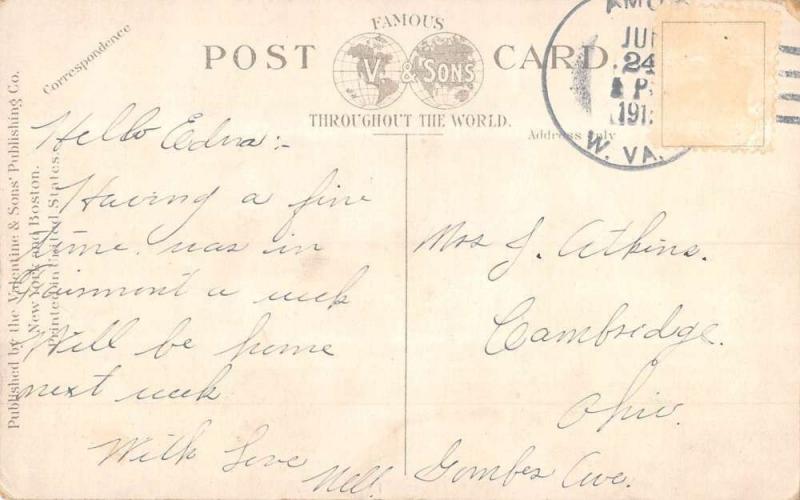 FAMOUS
POST CARD.
V. & SONS
THROUGHOUT THE WORLD.
Correspondence
Address Only
Published by the Valentine & Sons' Publishing Co.
New York and Boston.
Printed in United States.
JU
24
P
191
W. VA.
Hello Edna:-
Having a fine
time. was in
Fairmont a week
Will be home
next week
With Love
Nell.
Mrs J. Atkins.
Cambridge.
Ohio.
Gombes Ave.